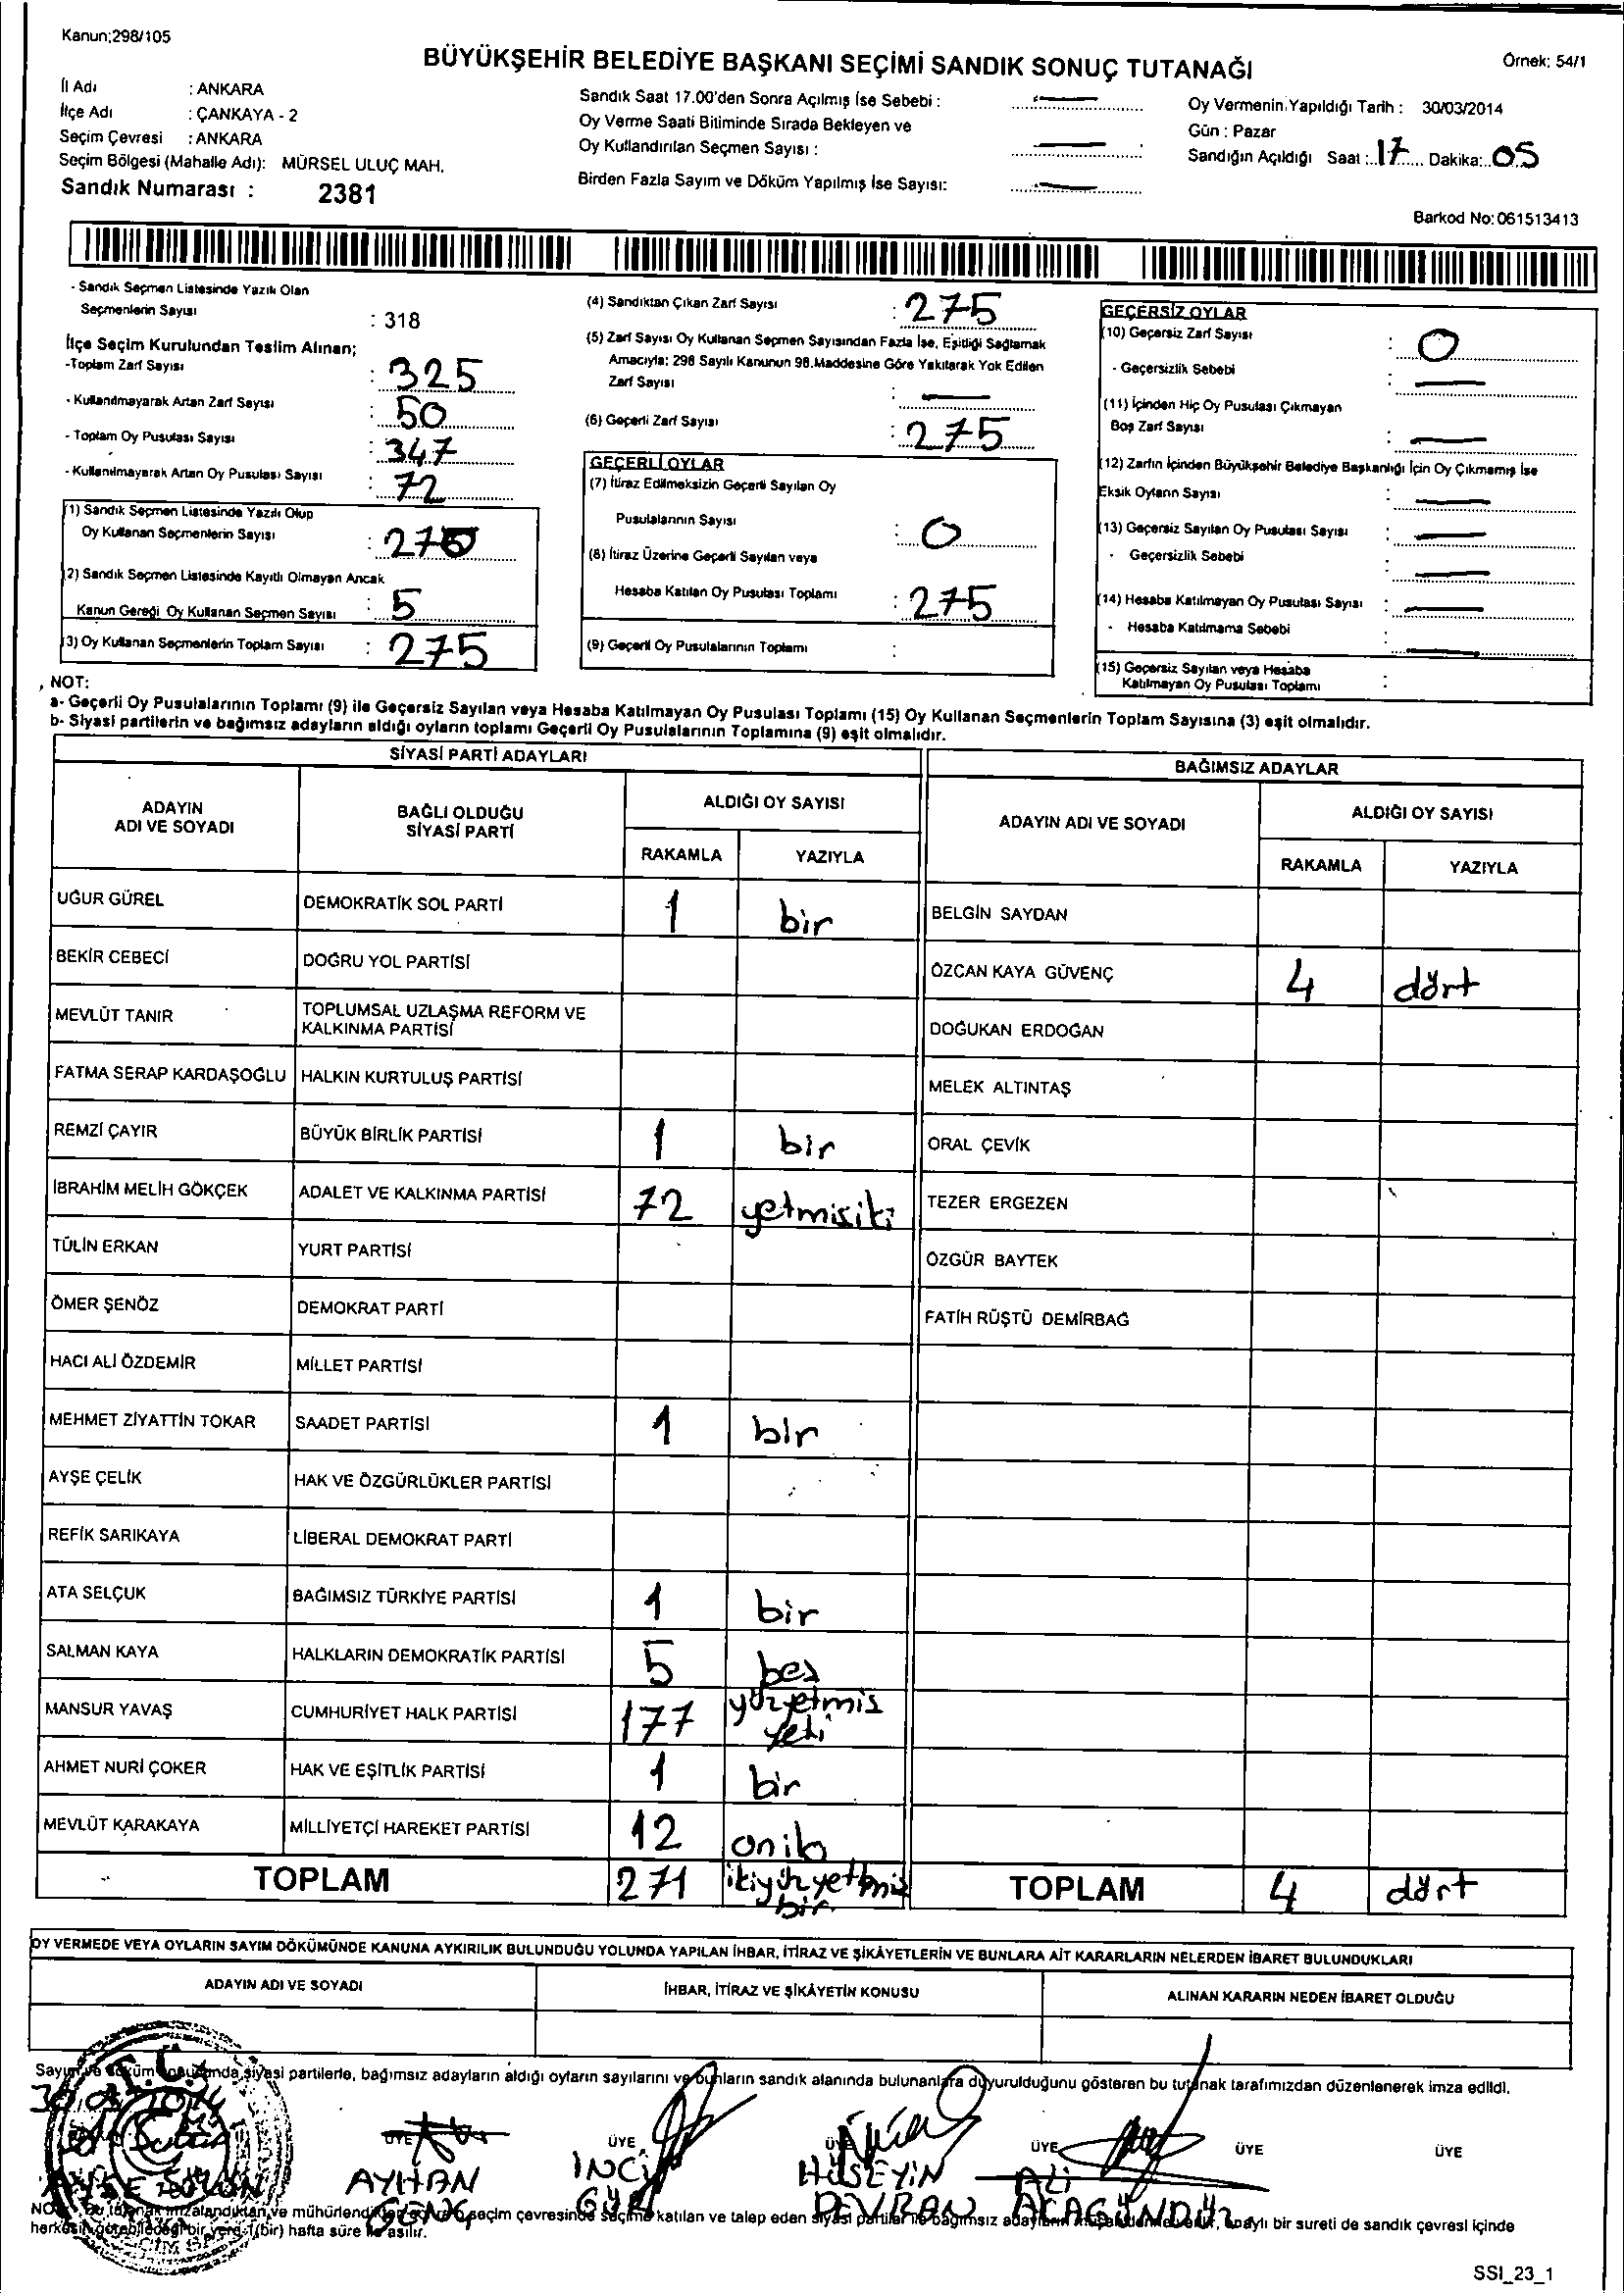 Kanun;298/105
BÜYÜKŞEHİR BELEDİYE BAŞKANI SEÇİMİ SANDIK SONUÇ TUTANAĞI
Örnek: 54/1
İl Adı : ANKARA
İlçe Adı : ÇANKAYA - 2
Seçim Çevresi : ANKARA
Seçim Bölgesi (Mahalle Adı): MÜRSEL ULUÇ MAH.
Sandık Numarası : 2381
Sandık Saat 17.00'den Sonra Açılmış İse Sebebi : —
Oy Verme Saati Bitiminde Sırada Bekleyen ve
Oy Kullandırılan Seçmen Sayısı : —
Birden Fazla Sayım ve Döküm Yapılmış İse Sayısı: —
Oy Vermenin Yapıldığı Tarih : 30/03/2014
Gün : Pazar
Sandığın Açıldığı Saat : 17 Dakika: 05
Barkod No: 061513413
- Sandık Seçmen Listesinde Yazılı Olan
Seçmenlerin Sayısı : 318
İlçe Seçim Kurulundan Teslim Alınan;
-Toplam Zarf Sayısı : 325
- Kullanılmayarak Artan Zarf Sayısı : 50
- Toplam Oy Pusulası Sayısı : 347
- Kullanılmayarak Artan Oy Pusulası Sayısı : 72
(1) Sandık Seçmen Listesinde Yazılı Olup
Oy Kullanan Seçmenlerin Sayısı : 270
(2) Sandık Seçmen Listesinde Kayıtlı Olmayan Ancak
Kanun Gereği Oy Kullanan Seçmen Sayısı : 5
(3) Oy Kullanan Seçmenlerin Toplam Sayısı : 275
(4) Sandıktan Çıkan Zarf Sayısı : 275
(5) Zarf Sayısı Oy Kullanan Seçmen Sayısından Fazla İse, Eşitliği Sağlamak
Amacıyla; 298 Sayılı Kanunun 98.Maddesine Göre Yakılarak Yok Edilen
Zarf Sayısı : —
(6) Geçerli Zarf Sayısı : 275
GEÇERLİ OYLAR
(7) İtiraz Edilmeksizin Geçerli Sayılan Oy
Pusulalarının Sayısı : 0
(8) İtiraz Üzerine Geçerli Sayılan veya
Hesaba Katılan Oy Pusulası Toplamı : 275
(9) Geçerli Oy Pusulalarının Toplamı :
GEÇERSİZ OYLAR
(10) Geçersiz Zarf Sayısı : 0
- Geçersizlik Sebebi : —
(11) İçinden Hiç Oy Pusulası Çıkmayan
Boş Zarf Sayısı : —
(12) Zarfın İçinden Büyükşehir Belediye Başkanlığı İçin Oy Çıkmamış İse
Eksik Oyların Sayısı : —
(13) Geçersiz Sayılan Oy Pusulası Sayısı : —
- Geçersizlik Sebebi : —
(14) Hesaba Katılmayan Oy Pusulası Sayısı : —
- Hesaba Katılmama Sebebi : —
(15) Geçersiz Sayılan veya Hesaba
Katılmayan Oy Pusulası Toplamı :
NOT:
a- Geçerli Oy Pusulalarının Toplamı (9) ile Geçersiz Sayılan veya Hesaba Katılmayan Oy Pusulası Toplamı (15) Oy Kullanan Seçmenlerin Toplam Sayısına (3) eşit olmalıdır.
b- Siyasi partilerin ve bağımsız adayların aldığı oyların toplamı Geçerli Oy Pusulalarının Toplamına (9) eşit olmalıdır.
SİYASİ PARTİ ADAYLARI
ADAYIN ADI VE SOYADI BAĞLI OLDUĞU SİYASİ PARTİ ALDIĞI OY SAYISI
RAKAMLA YAZIYLA
UĞUR GÜREL DEMOKRATİK SOL PARTİ 1 bir
BEKİR CEBECİ DOĞRU YOL PARTİSİ
MEVLÜT TANIR TOPLUMSAL UZLAŞMA REFORM VE KALKINMA PARTİSİ
FATMA SERAP KARDAŞOĞLU HALKIN KURTULUŞ PARTİSİ
REMZİ ÇAYIR BÜYÜK BİRLİK PARTİSİ 1 bir
İBRAHİM MELİH GÖKÇEK ADALET VE KALKINMA PARTİSİ 72 yetmisiki
TÜLİN ERKAN YURT PARTİSİ
ÖMER ŞENÖZ DEMOKRAT PARTİ
HACI ALİ ÖZDEMİR MİLLET PARTİSİ
MEHMET ZİYATTİN TOKAR SAADET PARTİSİ 1 bir
AYŞE ÇELİK HAK VE ÖZGÜRLÜKLER PARTİSİ
REFİK SARIKAYA LİBERAL DEMOKRAT PARTİ
ATA SELÇUK BAĞIMSIZ TÜRKİYE PARTİSİ 1 bir
SALMAN KAYA HALKLARIN DEMOKRATİK PARTİSİ 5 bes
MANSUR YAVAŞ CUMHURİYET HALK PARTİSİ 177 yüzyetmis yedi
AHMET NURİ ÇOKER HAK VE EŞİTLİK PARTİSİ 1 bir
MEVLÜT KARAKAYA MİLLİYETÇİ HAREKET PARTİSİ 12 oniki
TOPLAM 271 ikiyüzyetmis bir
BAĞIMSIZ ADAYLAR
ADAYIN ADI VE SOYADI ALDIĞI OY SAYISI
RAKAMLA YAZIYLA
BELGİN SAYDAN
ÖZCAN KAYA GÜVENÇ 4 dört
DOĞUKAN ERDOĞAN
MELEK ALTINTAŞ
ORAL ÇEVİK
TEZER ERGEZEN
ÖZGÜR BAYTEK
FATİH RÜŞTÜ DEMİRBAĞ
TOPLAM 4 dört
OY VERMEDE VEYA OYLARIN SAYIM DÖKÜMÜNDE KANUNA AYKIRILIK BULUNDUĞU YOLUNDA YAPILAN İHBAR, İTİRAZ VE ŞİKÂYETLERİN VE BUNLARA AİT KARARLARIN NELERDEN İBARET BULUNDUKLARI
ADAYIN ADI VE SOYADI İHBAR, İTİRAZ VE ŞİKÂYETİN KONUSU ALINAN KARARIN NEDEN İBARET OLDUĞU
Sayım ve döküm sonucunda siyasi partilerle, bağımsız adayların aldığı oyların sayılarını ve bunların sandık alanında bulunanlara duyurulduğunu gösteren bu tutanak tarafımızdan düzenlenerek imza edildi.
T.C.
ÜYE ÜYE ÜYE ÜYE ÜYE ÜYE
AYŞE AYHAN GENÇ İNCİ GÜR HÜSEYİN DEVRAN ALİ ACAGÜNDÜZ
NOT: Bu tutanak imzalandıktan ve mühürlendikten sonra o seçim çevresinde seçime katılan ve talep eden siyasi partiler ile bağımsız adayların, onaylı bir sureti de sandık çevresi içinde
herkesin görebileceği bir yere 1(bir) hafta süre ile asılır.
SSI_23_1